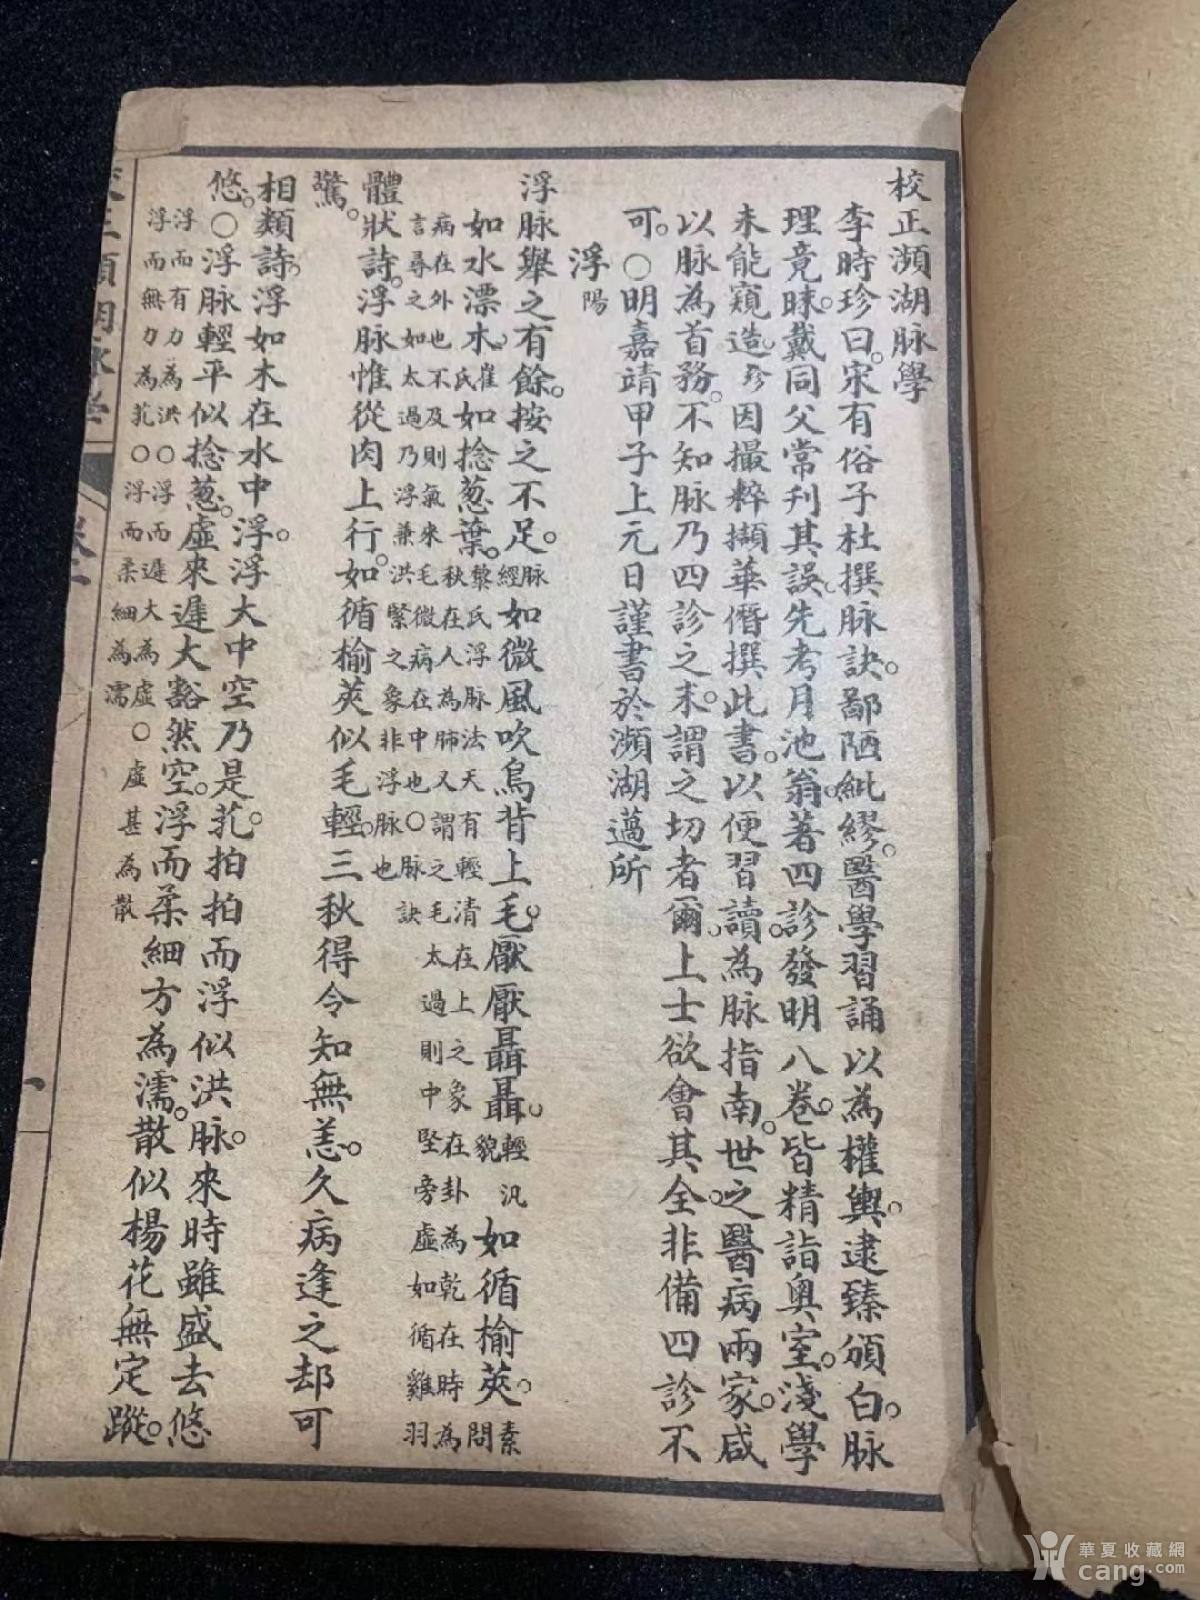 校正瀕湖脉學
李時珍曰。宋有俗子杜撰脉訣。鄙陋紕繆。醫學習誦以為權輿。逮臻頒白。脉
理竟昧。戴同父常刋其誤。先考月池翁。著四診發明八卷。皆精詣奥室。淺學
未能窺造。珍因撮粹擷華僭撰此書。以便習讀。為脉指南。世之醫病兩家。咸
以脉為首務。不知脉乃四診之末。謂之切者爾。上士欲會其全。非備四診不
可。○明嘉靖甲子上元日謹書於瀕湖薖所
浮 陽
浮脉舉之有餘。按之不足。脉經如微風吹鳥背上毛。厭厭聶聶。輕汎貌如循榆莢。素問
如水漂木。崔氏如捻葱葉。黎氏浮脉法天有輕清在上之象在卦為乾在時為秋在人為肺又謂之毛太過則中堅旁虛如循雞羽
病在外也不及則氣來毛微病在中也○脉訣言尋之如太過乃浮兼洪緊之象非浮脉也
體狀詩。浮脉惟從肉上行。如循榆莢似毛輕。三秋得令知無恙。久病逢之却可
驚。
相類詩。浮如木在水中浮。浮大中空乃是芤。拍拍而浮似洪脉。來時雖盛去悠
悠。○浮脉輕平似捻葱。虛來遲大豁然空。浮而柔細方為濡。散似楊花無定蹤。
浮而有力為洪○浮而遲大為虛○虛甚為散
浮而無力為芤○浮而柔細為濡
校正瀕湖脉學
一
華夏收藏網
cang.com